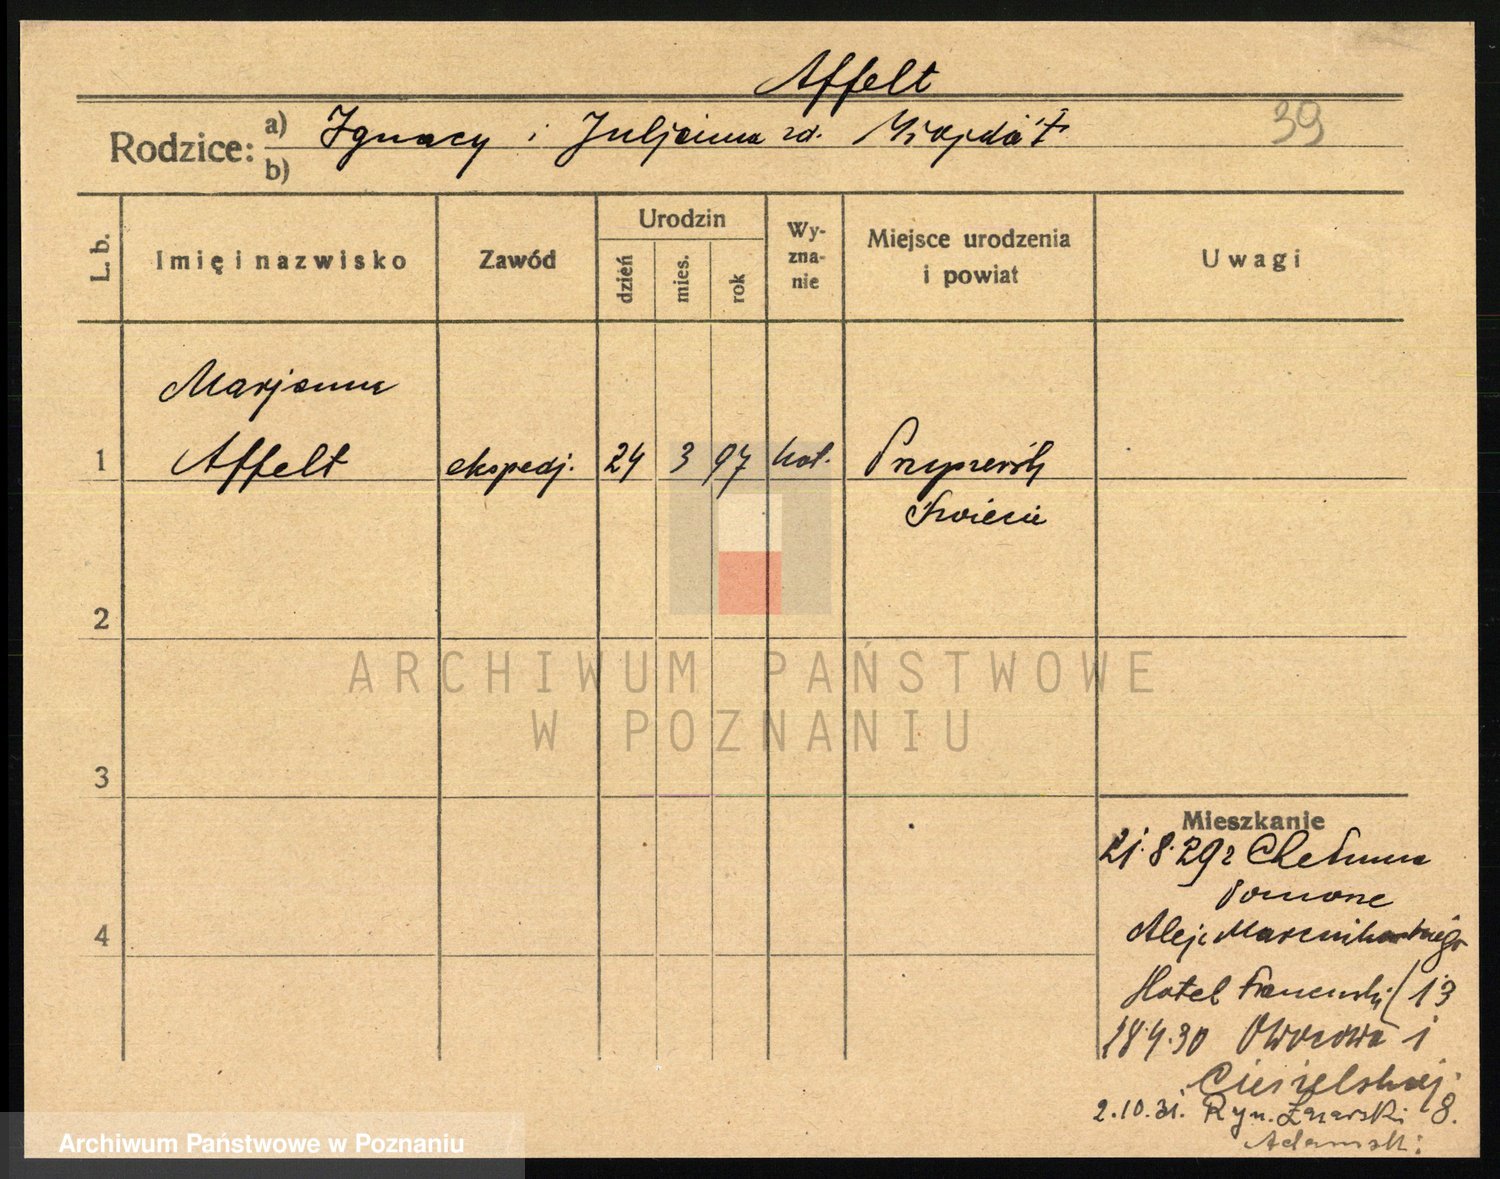 Affelt
39
Rodzice: a) Ignacy i Juljanna zd.
b)
L. b.
Imię i nazwisko
Zawód
Urodzin
dzień
mies.
rok
Wy-
zna-
nie
Miejsce urodzenia
i powiat
Uwagi
Marjanna
1 Affelt ekspedj. 24 3 97 kat.
Świecie
2
3
4
ARCHIWUM PAŃSTWOWE
W POZNANIU
Mieszkanie
21.8.29 r Chełmna
Pomorze
Aleje Marcinkowskiego
Hotel Francuski 13
18 4.30 Owocowa 1
Cieśielskiej.
2.10.31. Ryn. Łazarski 8.
Adamski
Archiwum Państwowe w Poznaniu